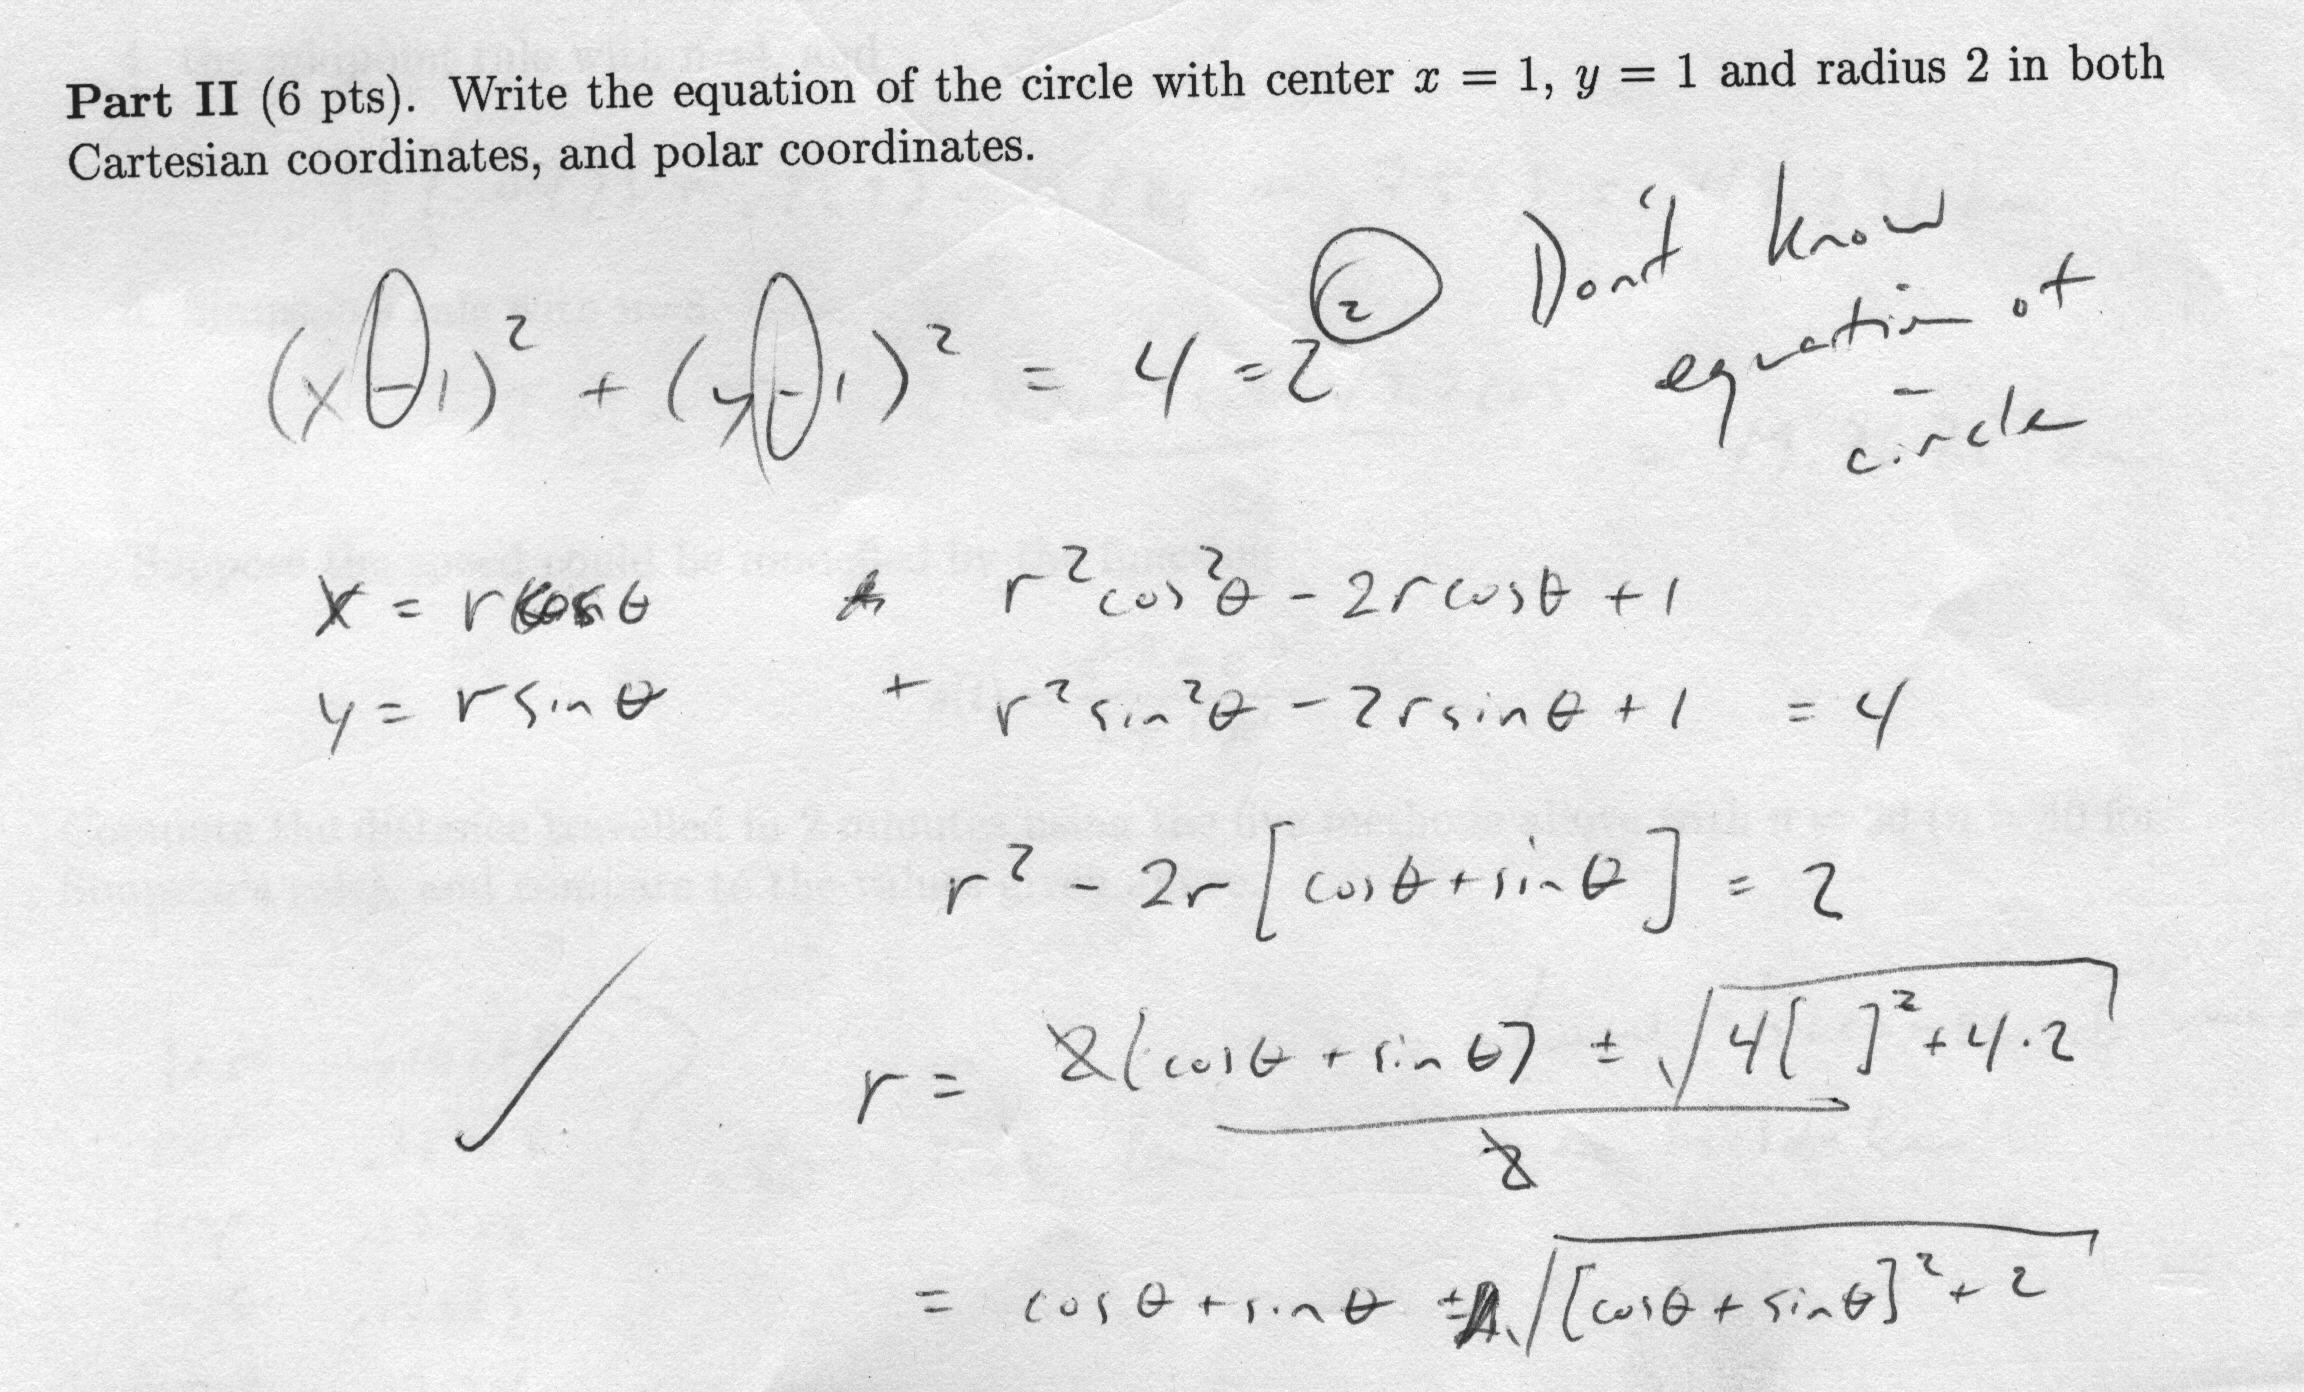 Part II (6 pts). Write the equation of the circle with center x = 1, y = 1 and radius 2 in both
Cartesian coordinates, and polar coordinates.
(x - 1)² + (y - 1)² = 4 = 2²
Don't know
equation of
circle
x = r cos θ
r² cos² θ - 2r cos θ + 1
y = r sin θ
+ r² sin² θ - 2r sin θ + 1 = 4
r² - 2r [cos θ + sin θ] = 2
r = 2(cos θ + sin θ) ± √4[ ]² + 4·2
2
= cos θ + sin θ ± √[cos θ + sin θ]² + 2